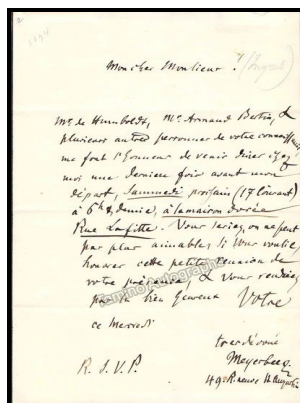 Mon cher Monsieur !
(Ingres)
Mr de Humboldt, Mr Armand Bertin, &
plusieurs autres personnes de votre connaissance
me font l'honneur de venir diner chez
moi une derniere fois avant mon
départ, Sammedi prochain (17 Courant)
à 6h & demie, à la maison dorée
Rue Lafitte. Vous seriez on ne peut
pas plus aimable, si vous vouliez
honorer cette petite reunion de
votre présence, & vous rendriez
par là bien heureux Votre
ce Mercredi
tres dévoué
Meyerbeer
R. S. V. P.
49 R. neuve St Augustin
tamino autographs